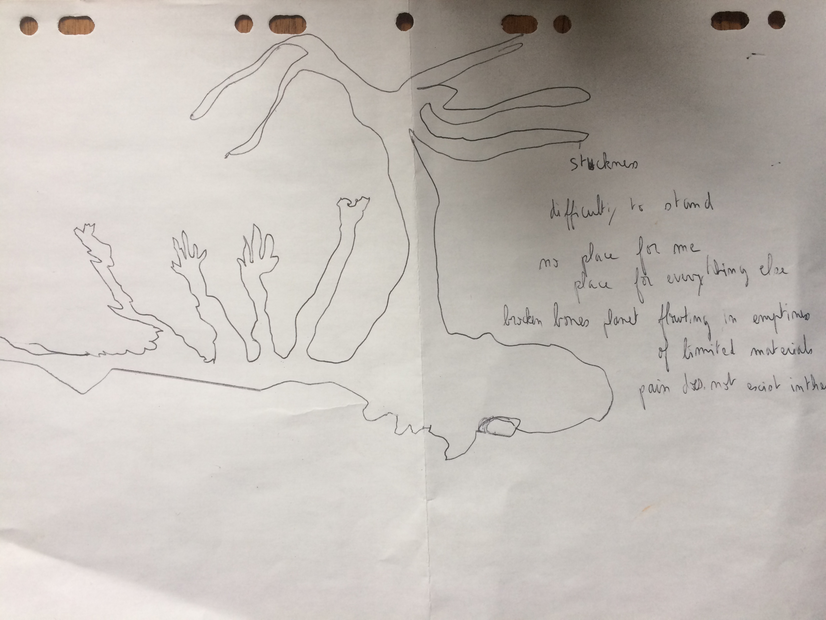 stuckness
difficulty to stand
no place for me
place for everything else
broken bones planet floating in emptines
of limited materials
pain does not exist in